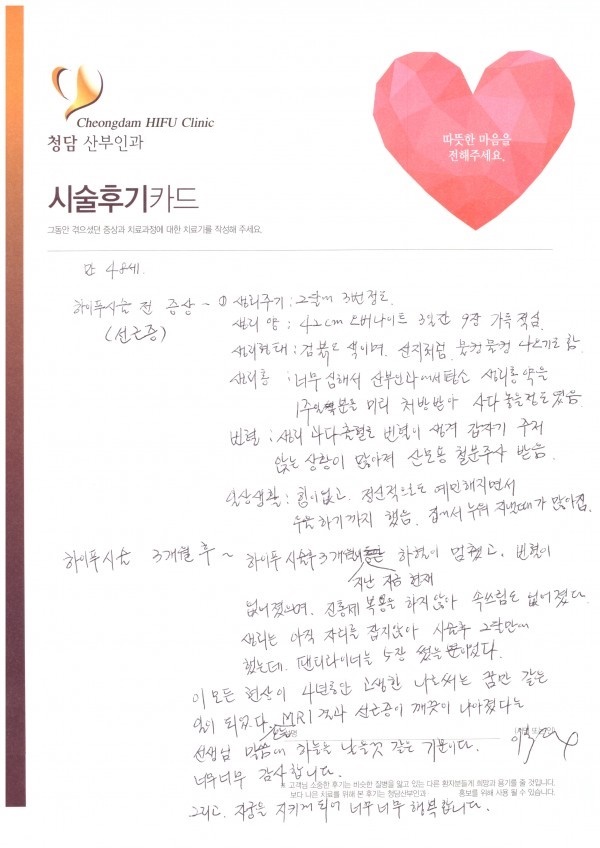 Cheongdam HIFU Clinic
청담 산부인과
따뜻한 마음을
전해주세요.
시술후기카드
그동안 겪으셨던 증상과 치료과정에 대한 치료기를 작성해 주세요.
만 48세.
하이푸시술 전 증상 ~ ① 생리주기 : 2달에 3번정도.
(선근증)
생리 양 : 42cm 오버나이트 3일간 9장 가득 적심.
생리형태 : 검붉은 색이며, 선지처럼. 뭉컹뭉컹 나오기도 함.
생리통 : 너무 심해서 산부인과에서 탄소 생리통약을
1주일분을 미리 처방받아 사다 놓을정도였음.
빈혈 : 생리 과다출혈로 빈혈이 생겨 갑자기 주저
앉는 상황이 많아져 산모용 철분주사 받음.
일상생활 : 힘이없고. 정신적으로도 예민해지면서
우울하기까지 했음. 집에서 누워 지낼때가 많아짐.
하이푸시술 3개월 후 ~ 하이푸 시술후 3개월이 하혈이 멈췄고, 빈혈이
지난 지금 현재
없어졌으며. 진통제 복용을 하지않아 속쓰림도 없어졌다.
생리는 아직 자리를 잡지않아 시술후 2달만에
했는데. 팬티라이너를 5장 썼을 뿐이었다.
이 모든 현상이 4년동안 고생한 나로써는 꿈만 같은
일이 되었다. MRI 결과 선근증이 깨끗이 나아졌다는
선생님 말씀에 하늘을 날을것 같은 기분이다.
너무너무 감사합니다.
※ 고객님 소중한 후기는 비슷한 질병을 앓고 있는 다른 환자분들께 희망과 용기를 줄 것입니다.
보다 나은 치료를 위해 본 후기는 청담산부인과 홍보를 위해 사용 될 수 있습니다.
그리고. 자궁을 지키게 되어 너무너무 행복합니다.